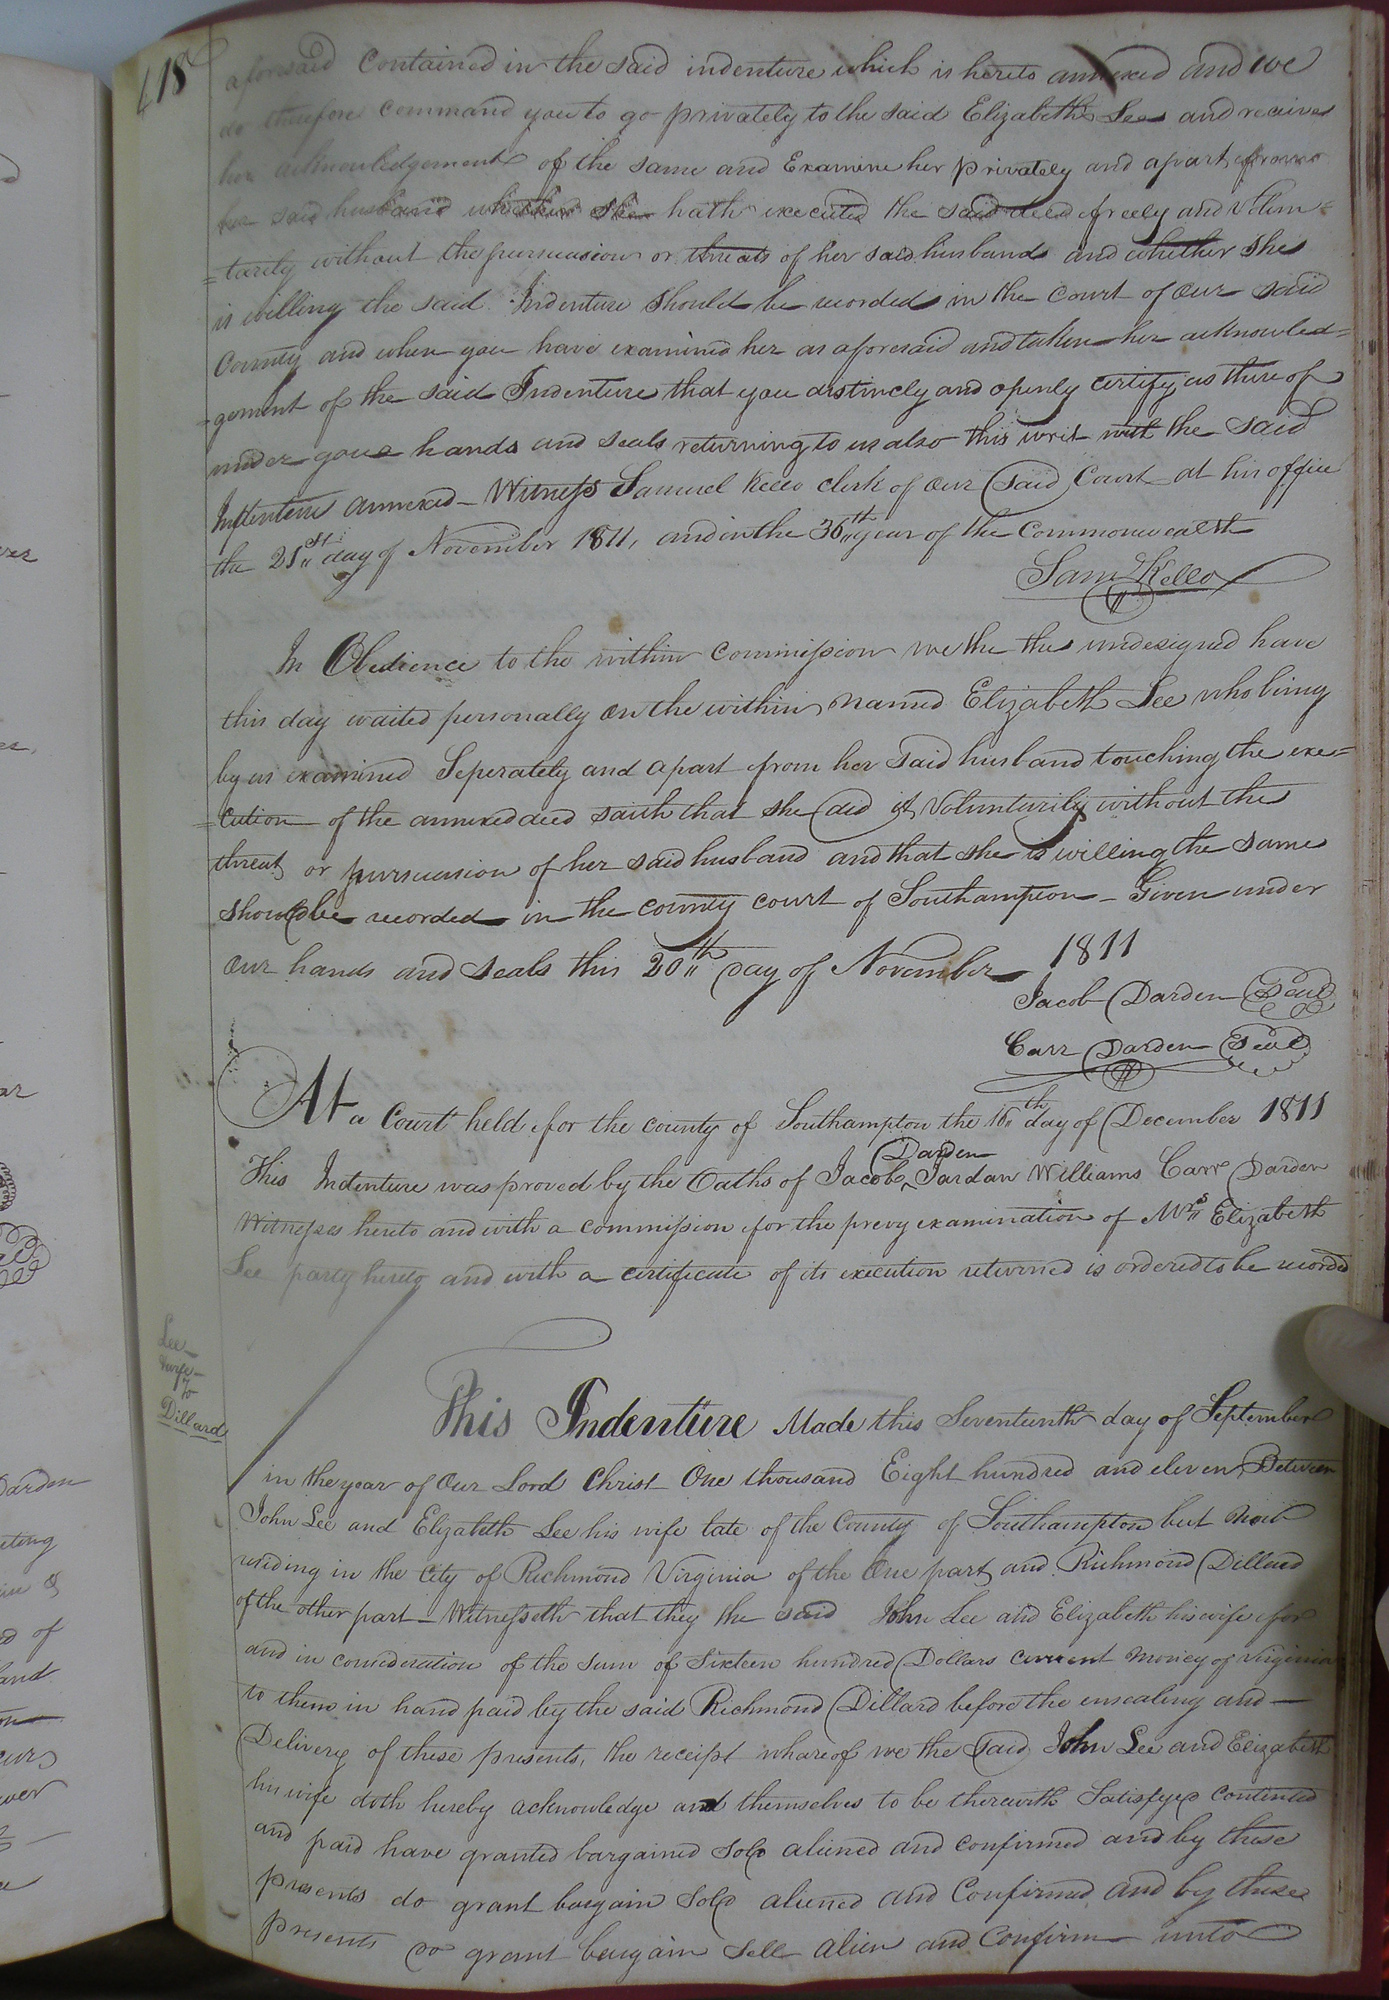 418
aforesaid Contained in the said indenture which is hereto annexed and we
do therefore command you to go privately to the said Elizabeth Lee and receive
her acknowledgement of the same and Examine her privately and apart from
her said husband whether she hath executed the said deed freely and Volun-
=tarily without the pursuasion or threats of her said husband and whether she
is willing the said Indenture should be recorded in the Court of our said
County and when you have examined her as aforesaid and taken her acknowled=
-gement of the said Indenture that you distincly and openly certify us there of
under your hands and seals returning to us also this writ with the said
Indenture annexed - Witness Samuel Kello clerk of our said Court at his office
the 21st day of November 1811, and in the 36th year of the Commonwealth
Sam Kello
In Obedience to the within Commission we the the undesigned have
this day waited personally on the within named Elizabeth Lee who being
by us examined Seperately and apart from her said husband touching the exe=
=cution of the annexed deed saith that she did it Volunturily without the
threat or pursuasion of her said husband and that she is willing the same
should be recorded in the county court of Southampton - Given under
our hands and seals this 20th day of November 1811
Jacob Darden Seal
Carr Darden Seal
At a Court held for the county of Southampton the 16th day of December 1811
This Indenture was proved by the Oaths of Jacob Darden Jardan Williams Carr Darden
Witnesses hereto and with a commission for the prevy examination of Mrs Elizabeth
Lee party hereto and with a certificate of its execution returned is ordered to be recorded
Lee
to
Dillard
This Indenture Made this Seventeenth day of September
in the year of Our Lord Christ One thousand Eight hundred and eleven Between
John Lee and Elizabeth Lee his wife late of the County of Southampton but now
residing in the City of Richmond Virginia of the One part and Richmond Dillard
of the other part - Witnesseth that they the said John Lee and Elizabeth his wife for
and in consideration of the sum of Sixteen hundred Dollars current Money of Virginia
to them in hand paid by the said Richmond Dillard before the ensealing and
Delivery of these presents, the receipt whareof we the said John Lee and Elizabeth
his wife doth hereby acknowledge and themselves to be therewith Satisfyed contented
and paid have granted bargained Sold aliened and confirmed and by these
presents do grant bargain Sold aliened and Confirmed and by these
presents do grant bargain Sell Alien and Confirm unto